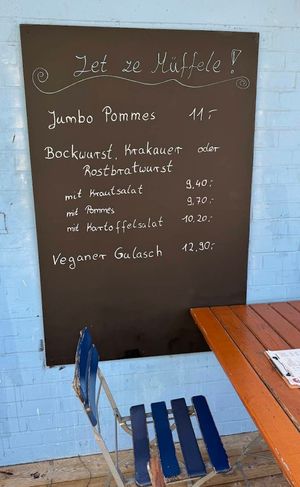 Jet ze Müffele!
Jumbo Pommes 11,-
Bockwurst, Krakauer oder
Rostbratwurst
mit Krautsalat 9,40,-
mit Pommes 9,70,-
mit Kartoffelsalat 10,20,-
Veganer Gulasch 12,90,-